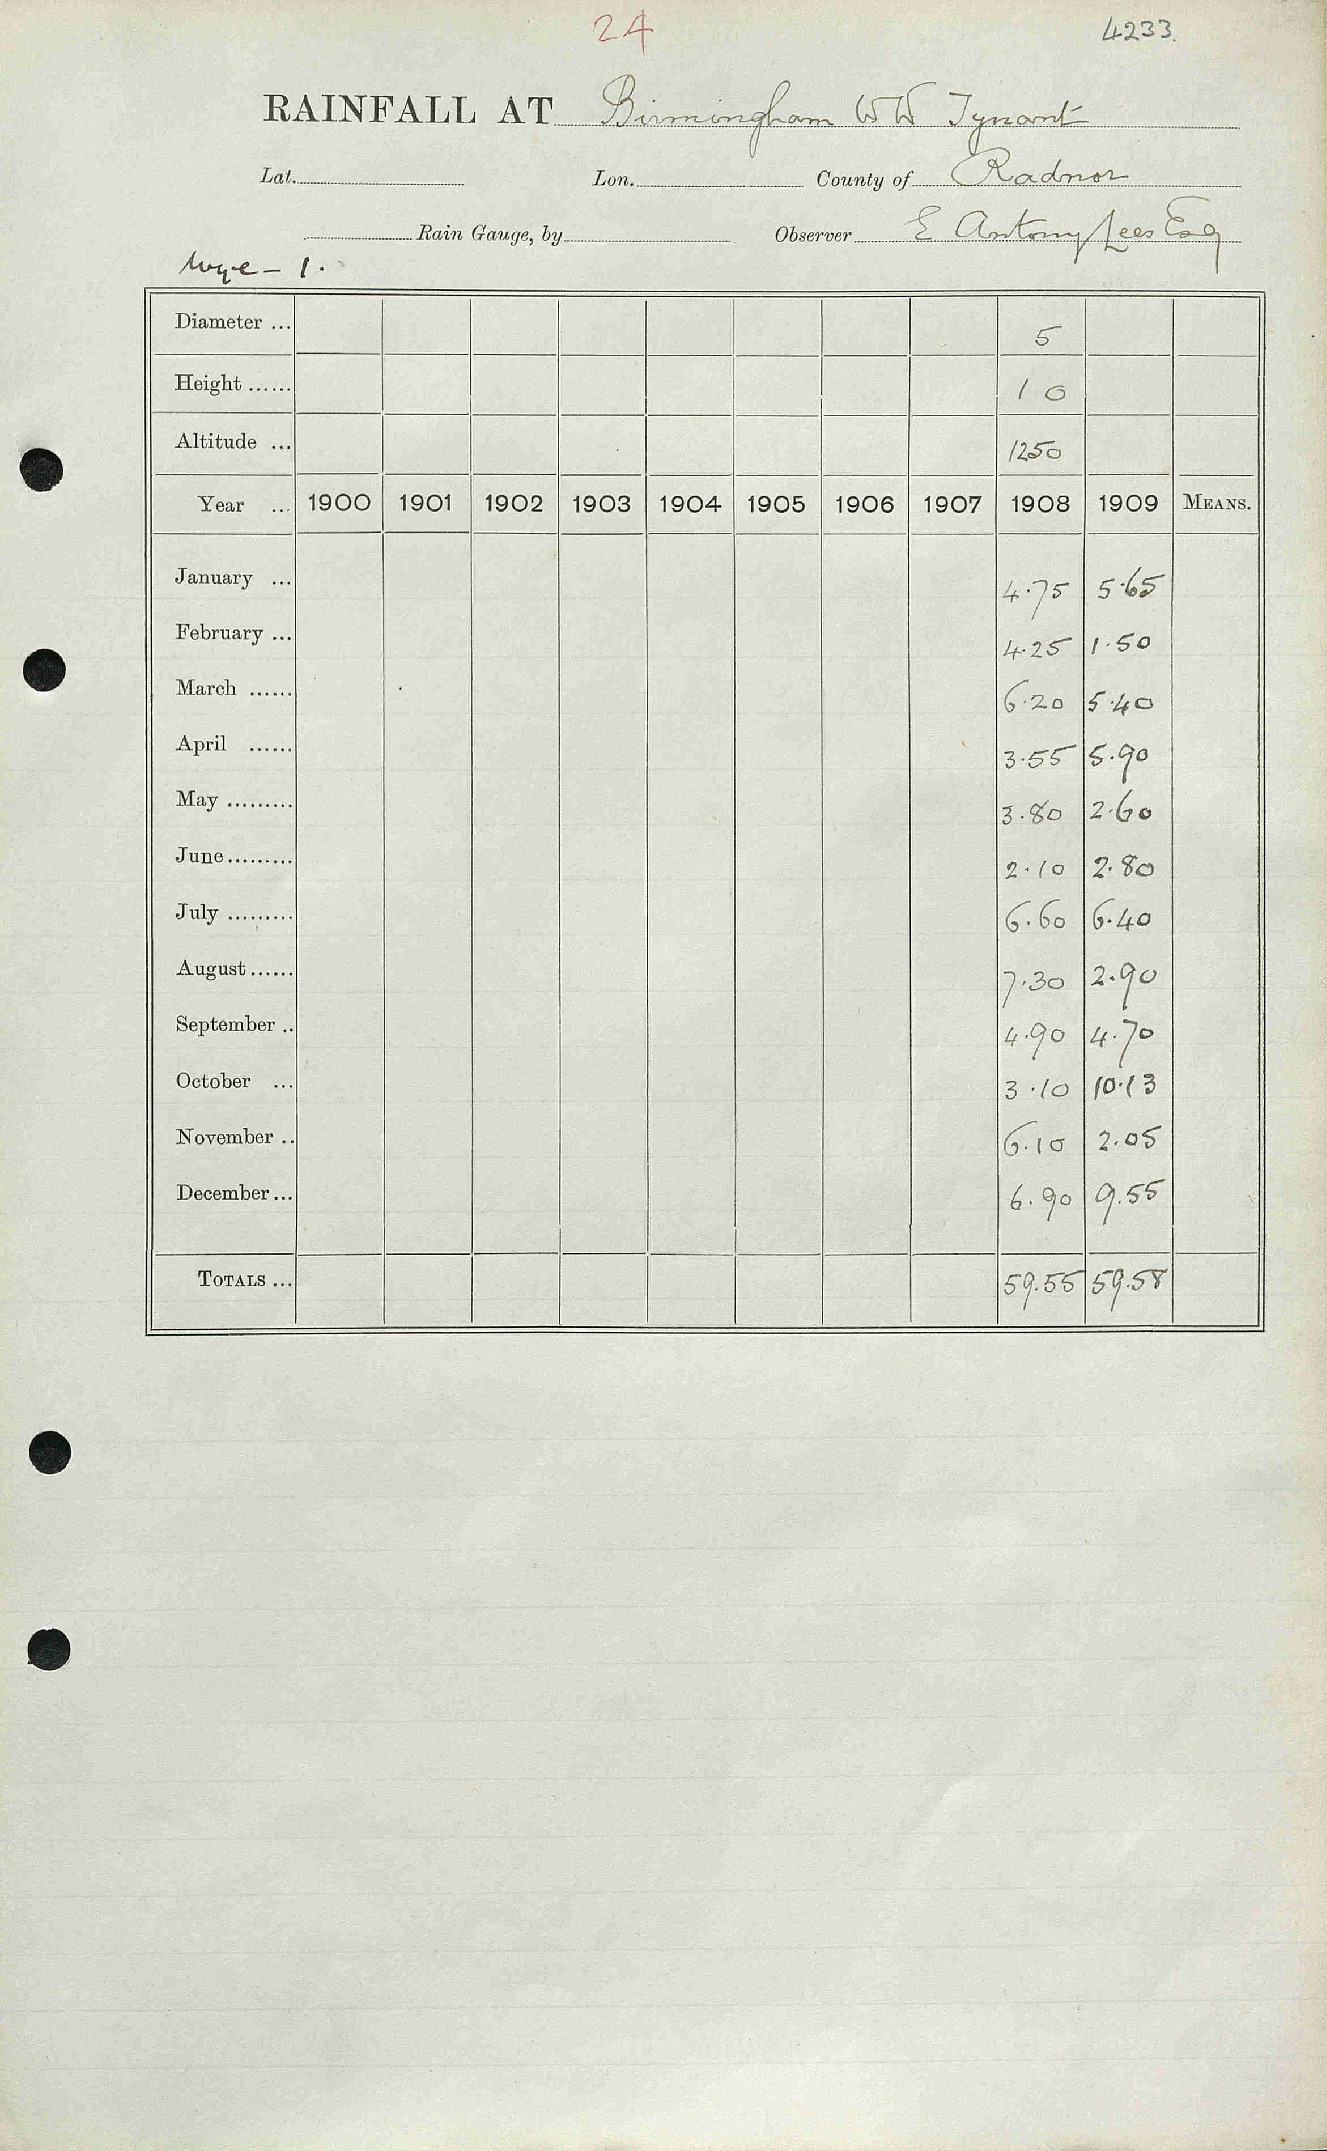 24
4233.
RAINFALL AT Birmingham WW Tynant
Lat. Lon. County of Radnor
Rain Gauge, by Observer E Antony Lees Esq
Wye - 1.
Diameter ... 5
Height ...... 10
Altitude ... 1250
Year ... 1900 1901 1902 1903 1904 1905 1906 1907 1908 1909 MEANS.
January ... 4.75 5.65
February ... 4.25 1.50
March ...... 6.20 5.40
April ...... 3.55 5.90
May ......... 3.80 2.60
June......... 2.10 2.80
July ......... 6.60 6.40
August...... 7.30 2.90
September .. 4.90 4.70
October ... 3.10 10.13
November .. 6.10 2.05
December... 6.90 9.55
TOTALS ... 59.55 59.58